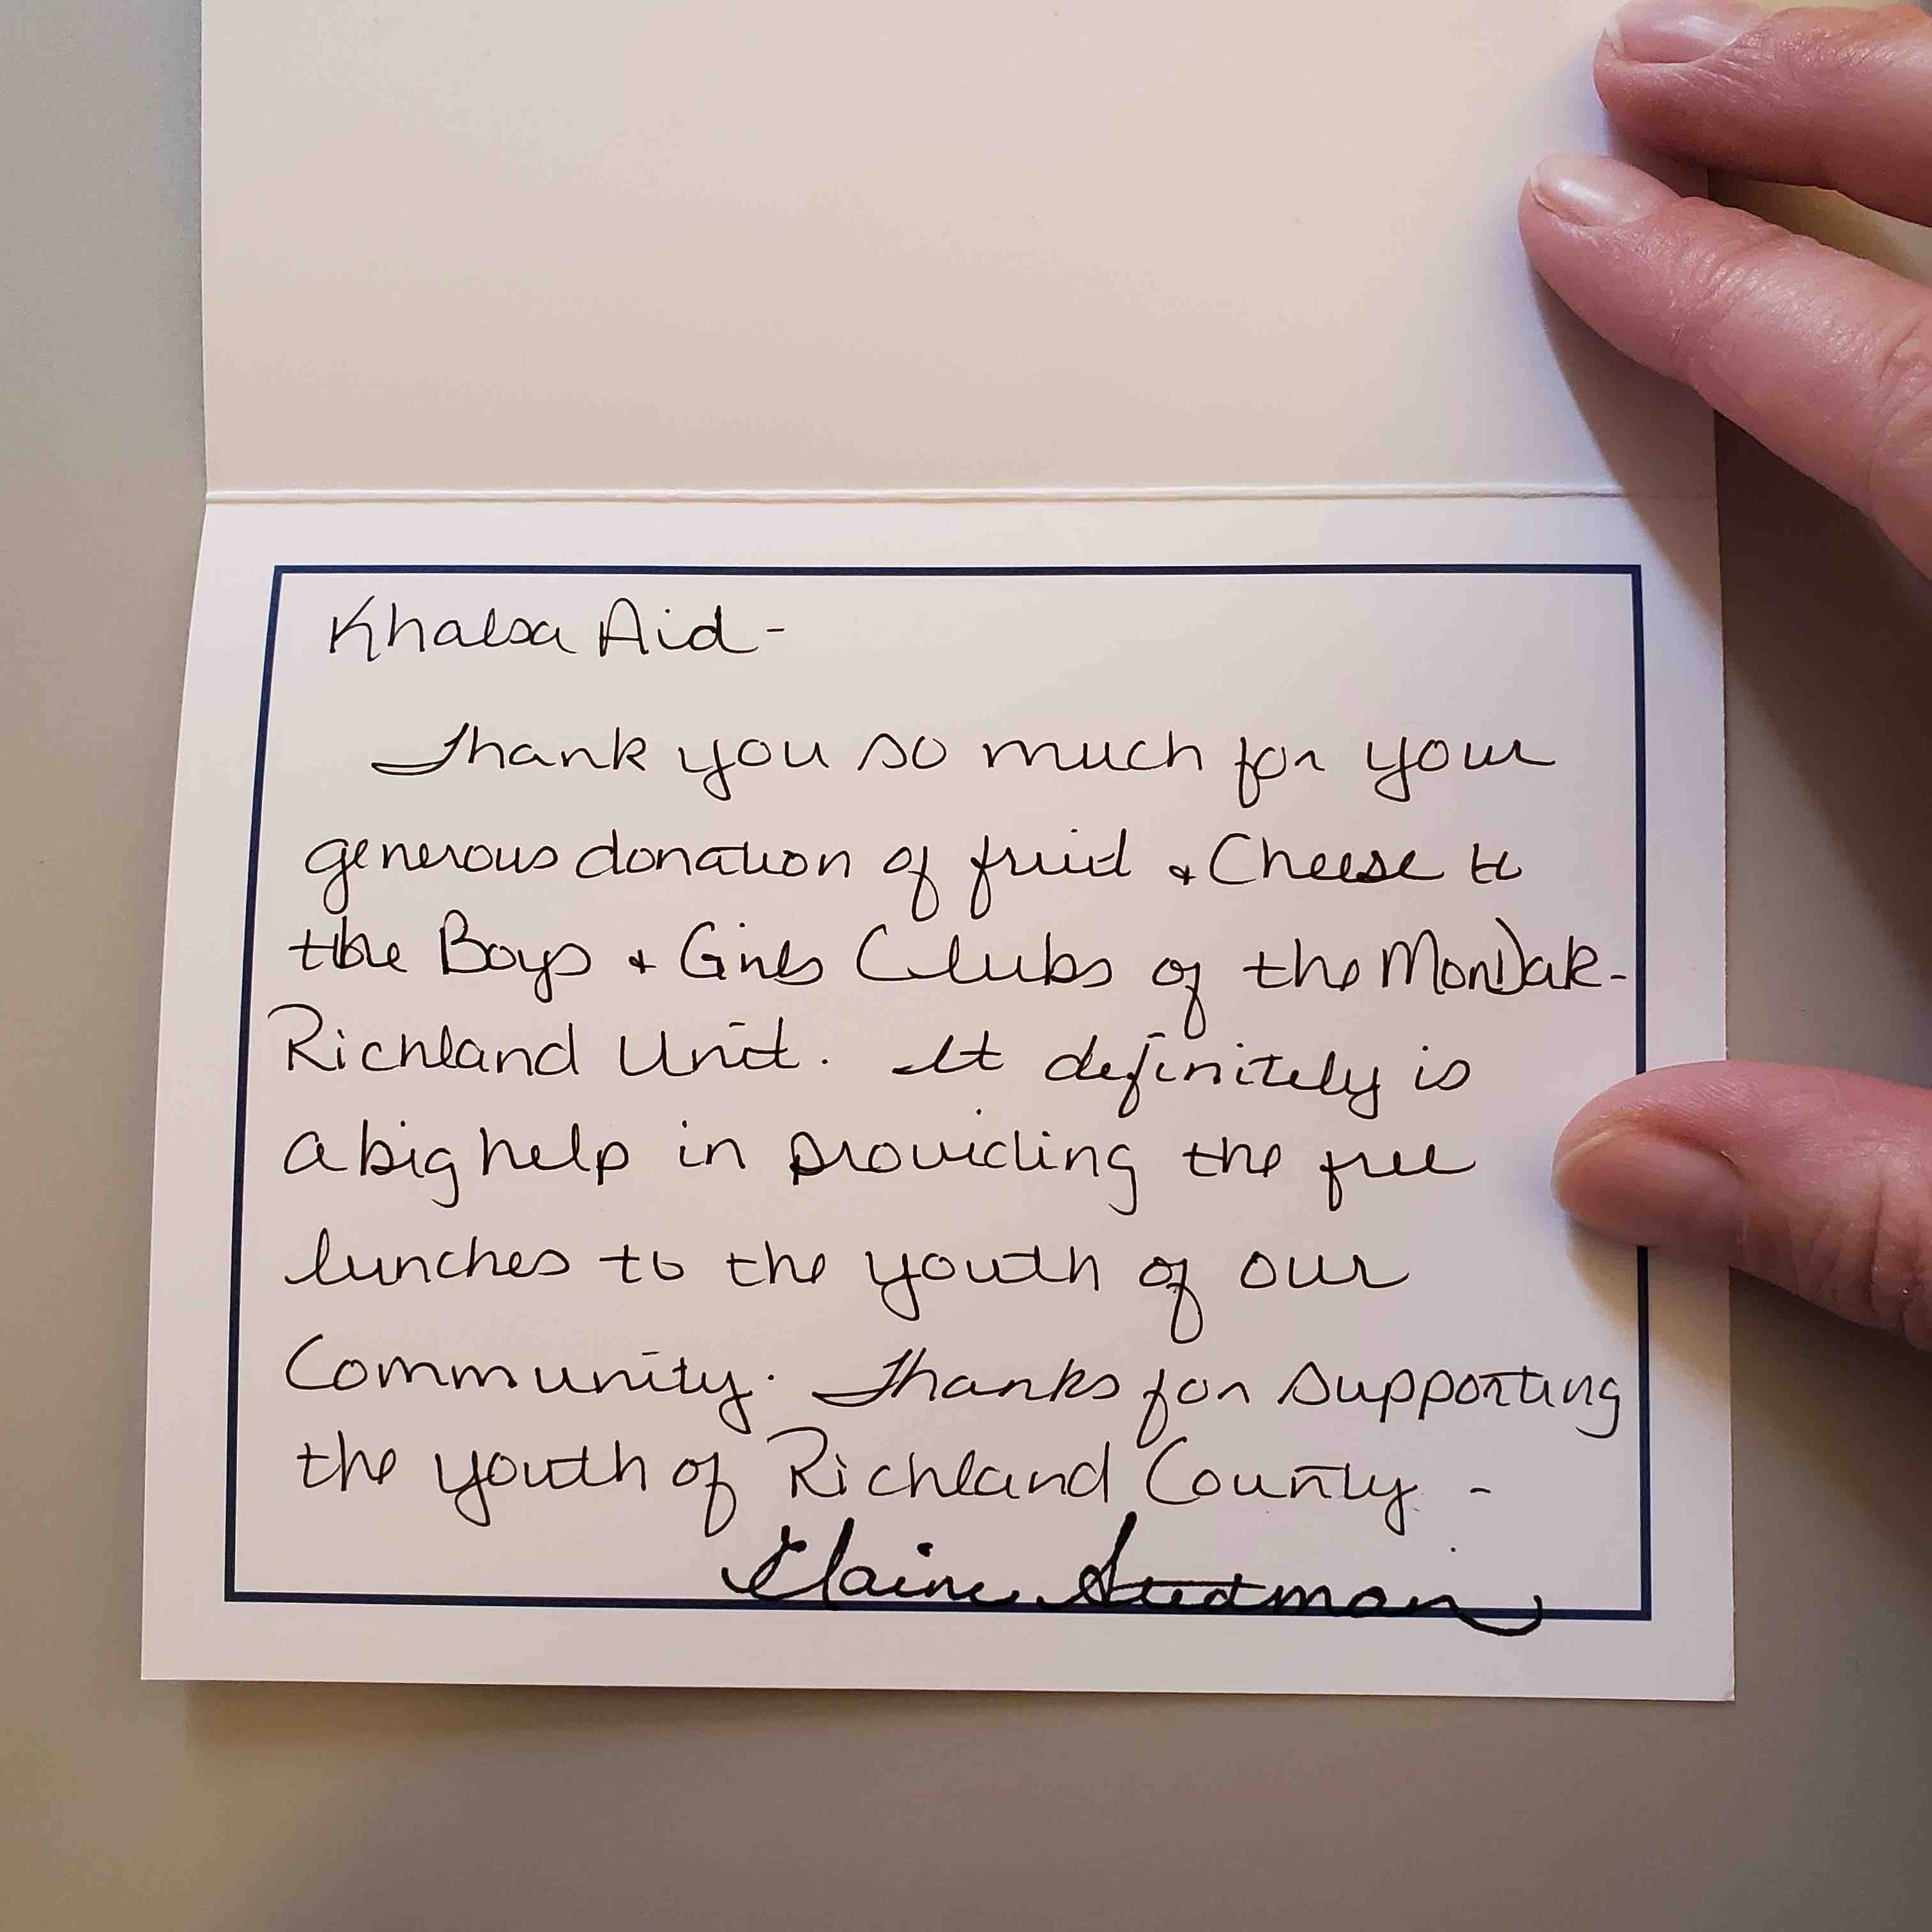 Khalsa Aid -
Thank you so much for your
generous donation of fruit & Cheese to
the Boys & Girls Clubs of the MonDak -
Richland Unit. It definitely is
a big help in providing the free
lunches to the youth of our
Community. Thanks for supporting
the youth of Richland County -
Elaine Stedman